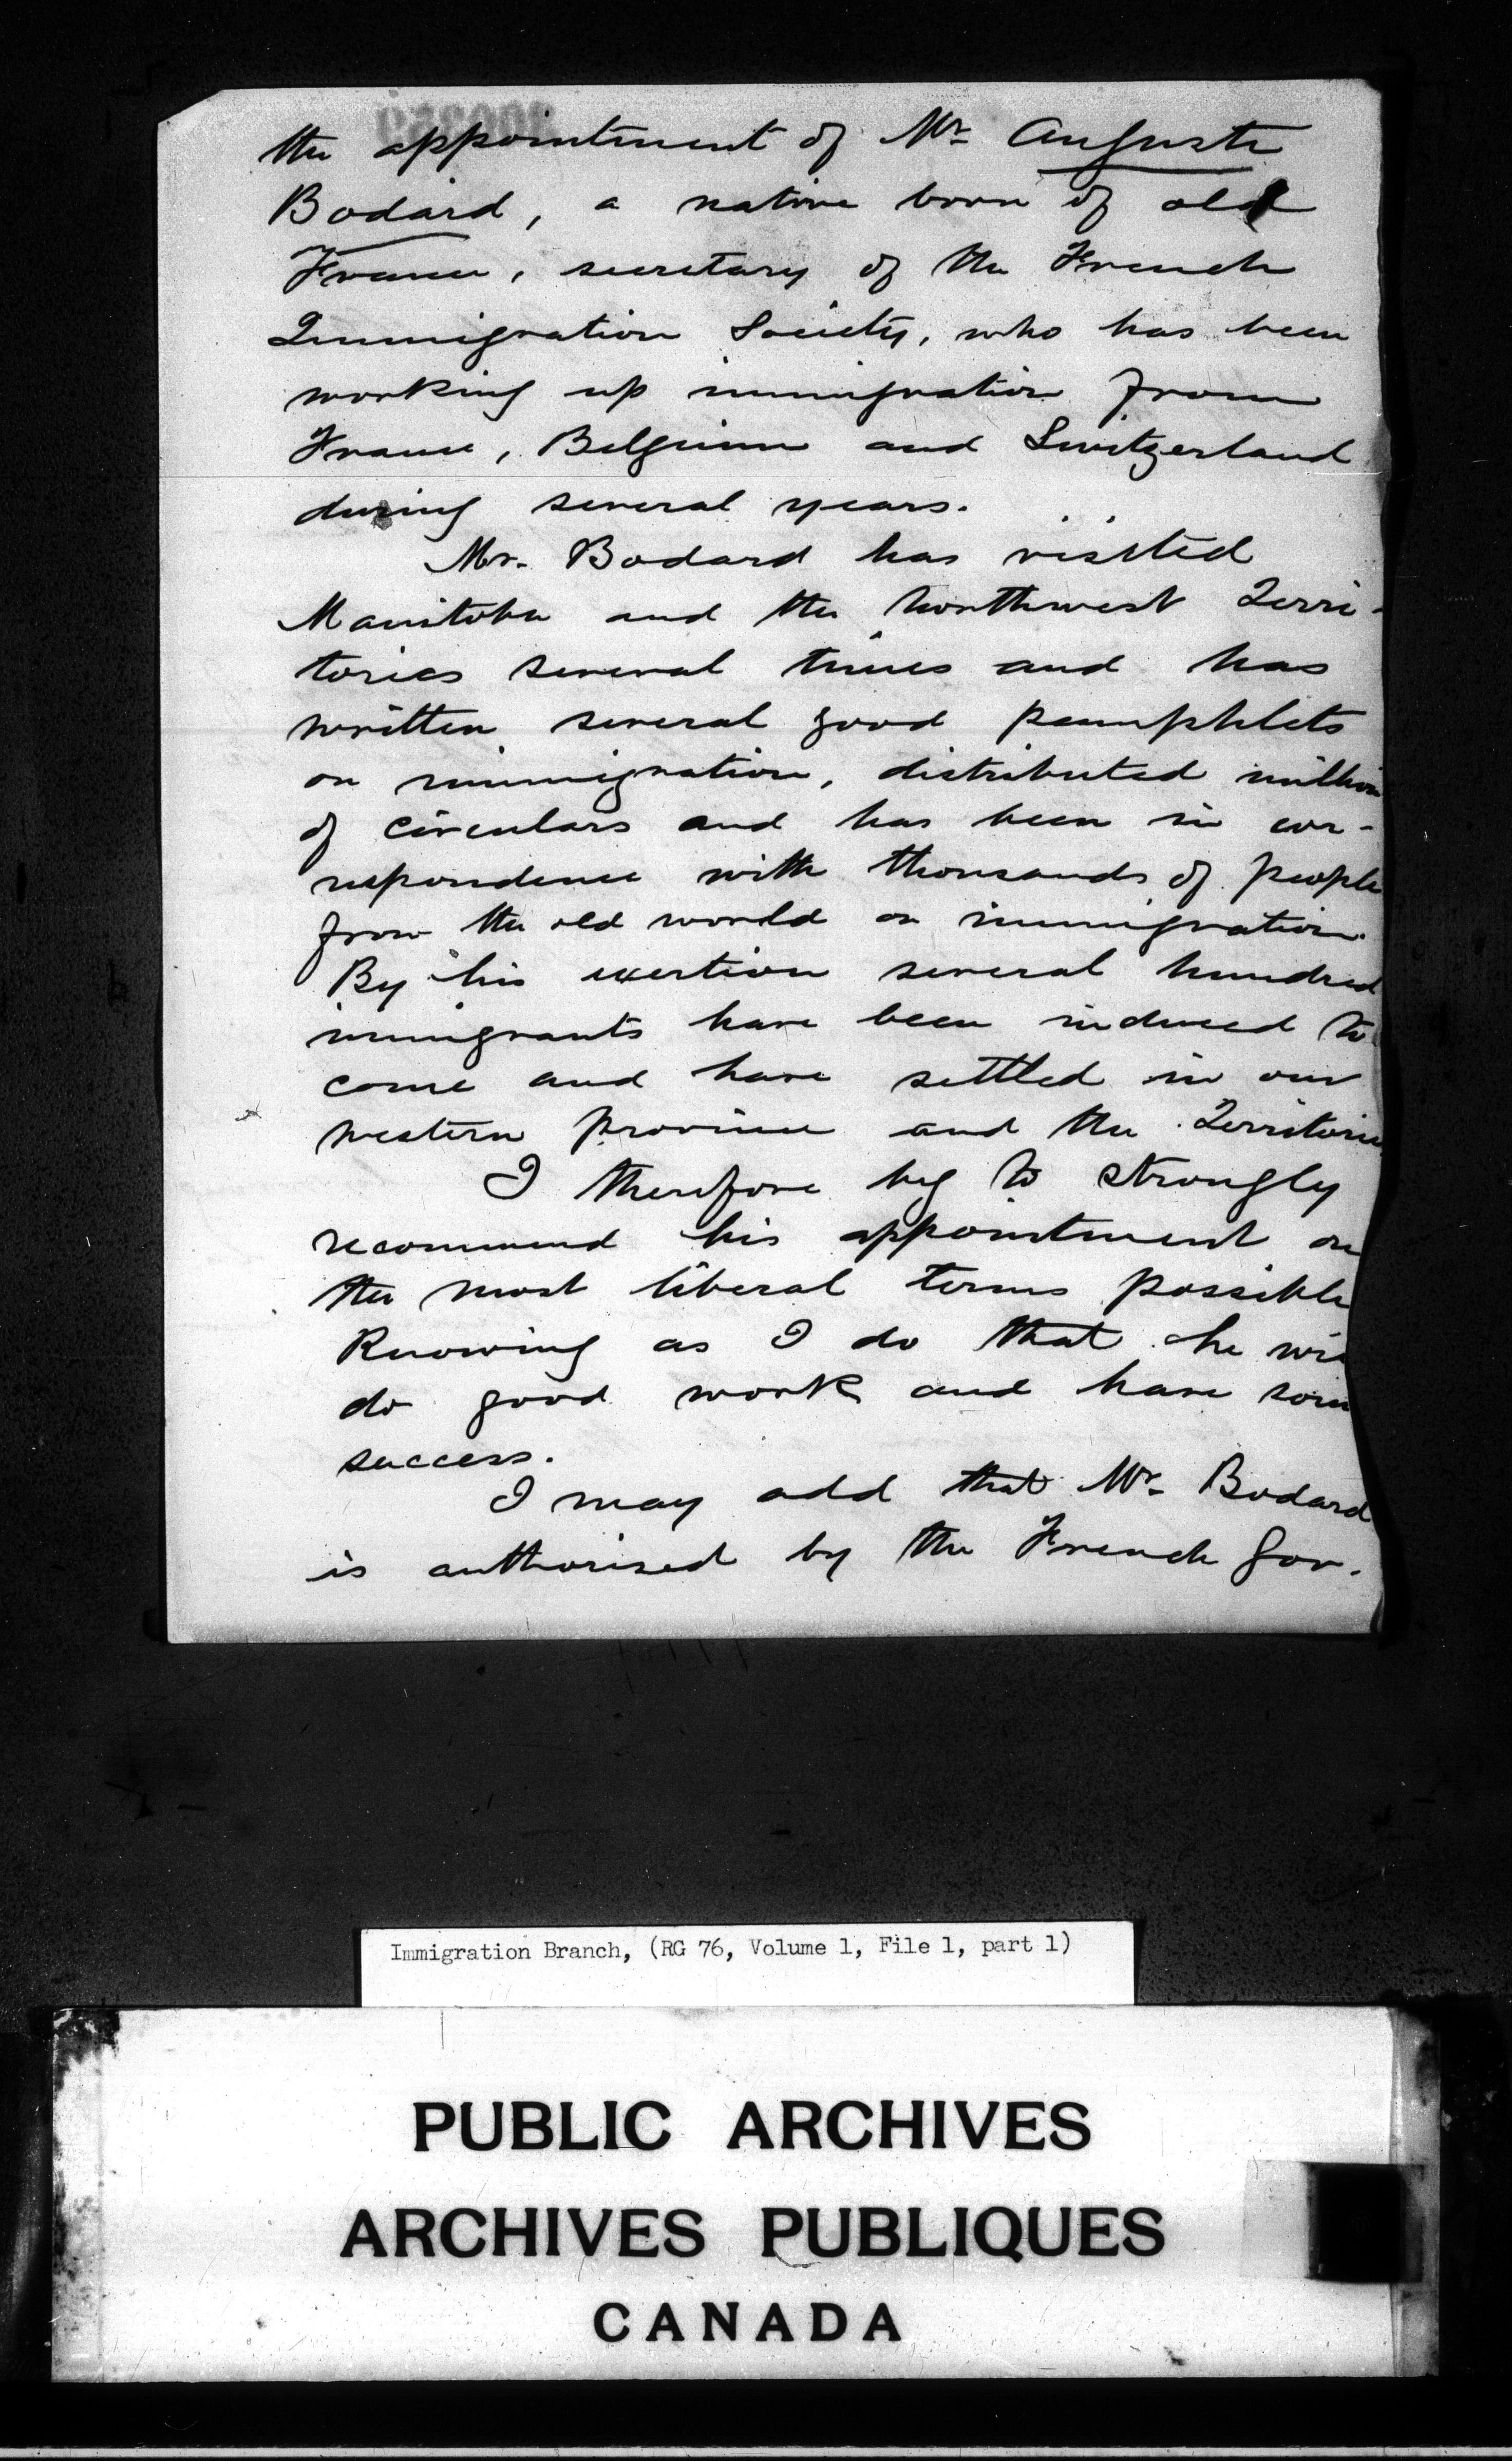 the appointment of Mr. Auguste
Bodard, a native born of old
France, secretary of the French
Immigration Society, who has been
working up immigration from
France, Belgium and Switzerland
during several years.
Mr. Bodard has visited
Manitoba and the Northwest Terri-
tories several times and has
written several good pamphlets
on immigration, distributed million
of circulars and has been in cor-
respondence with thousands of people
from the old world on immigration.
By his exertion several hundred
immigrants have been induced to
come and have settled in our
western province and the Territorie
I therefore beg to strongly
recommend his appointment on
the most liberal terms possible
Knowing as I do that he wi
do good work and have som
success.
I may add that Mr. Bodard
is authorised by the French Gov.
Immigration Branch, (RG 76, Volume 1, File 1, part 1)
PUBLIC ARCHIVES
ARCHIVES PUBLIQUES
CANADA